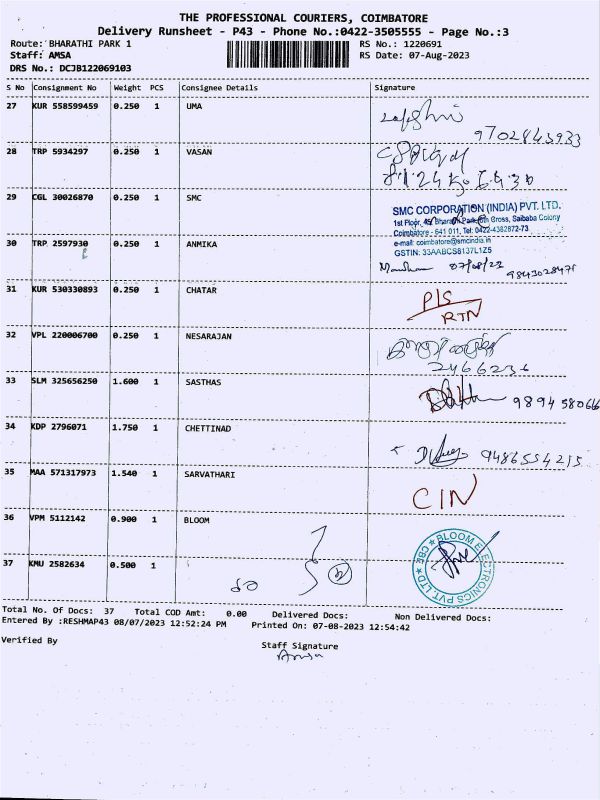 THE PROFESSIONAL COURIERS, COIMBATORE
Delivery Runsheet - P43 - Phone No.:0422-3505555 - Page No.:3
Route: BHARATHI PARK 1 RS No.: 1220691
Staff: AMSA RS Date: 07-Aug-2023
DRS No.: DCJB122069103
S No Consignment No Weight PCS Consignee Details Signature
27 KUR 558599459 0.250 1 UMA
9702843933
28 TRP 5934297 0.250 1 VASAN
29 CGL 30026870 0.250 1 SMC
SMC CORPORATION (INDIA) PVT. LTD.
1st Floor, 45, Bharathi Park 6th Cross, Saibaba Colony
Coimbatore - 641 011, Tel: 0422-4382872-73
e-mail: coimbatore@smcindia.in
GSTIN: 33AABCS8137L1Z5
30 TRP 2597930 0.250 1 ANMIKA
07/08/23 9843028471
31 KUR 530330893 0.250 1 CHATAR
P/S
RTN
32 VPL 220006700 0.250 1 NESARAJAN
2466236
33 SLM 325656250 1.600 1 SASTHAS
9894580666
34 KDP 2796071 1.750 1 CHETTINAD
9486554215
35 MAA 571317973 1.540 1 SARVATHARI
CIN
36 VPM 5112142 0.900 1 BLOOM
BLOOM ELECTRONICS PVT. LTD. CBE
37 KMU 2582634 0.500 1
Total No. Of Docs: 37 Total COD Amt: 0.00 Delivered Docs: Non Delivered Docs:
Entered By :RESHMAP43 08/07/2023 12:52:24 PM Printed On: 07-08-2023 12:54:42
Verified By Staff Signature
Amsa